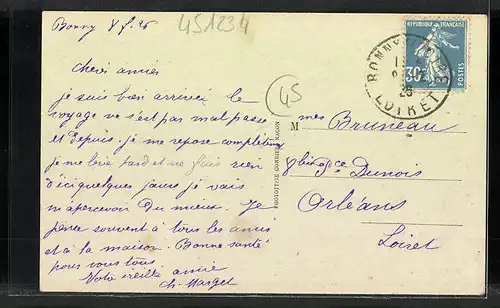 Bonny 8 f. 26
451234
Chères amies
je suis bien arrivée le
voyage ne s'est pas mal passé
et depuis je me repose complètem
je me lève tard et ne fais rien
d'ici quelques jours je vais
m'apercevoir du mieux. Je
pense souvent à tous les amis
et à la maison. Bonne santé
pour vous tous
Votre vieille amie
Ch. Marget
45
PHOTOTYPIE COMBIER MACON
RÉPUBLIQUE FRANÇAISE
30c
POSTES
BONNY
26
LOIRET
M mes Bruneau
Dunois
Orléans
Loiret